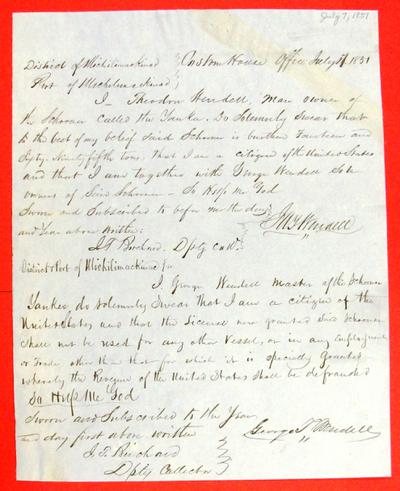 July 7, 1851
District of Michilimackinac } Custom House Office July 7 1851
Port of Michilimackinac }
I Theodore Wendell, owner of
the Schooner called the Yankee. Do Solemnly Swear that
to the best of my belief Said Schooner is burthen Fourteen and
Ninety fifths tons; that I am a citizen of the United States
and that I am together with George Wendell Sole
owners of Said Schooner – So Help me God
Sworn and Subscribed to before me the day
and Year above written: Wendell
Dpty
District & Port of Michilimackinac
I George Wendell Master of the Schooner
Yankee, do Solemnly Swear that I am a citizen of the
United States and that the License now granted Said Schooner
Shall not be used for any other Vessel, or in any Employment
or Trade other than that for which it is specially Granted
whereby the Revenue of the United States Shall be defrauded
So Help Me God
Sworn and Subscribed to the Year
and day first above written George Wendell
Dpty Collector